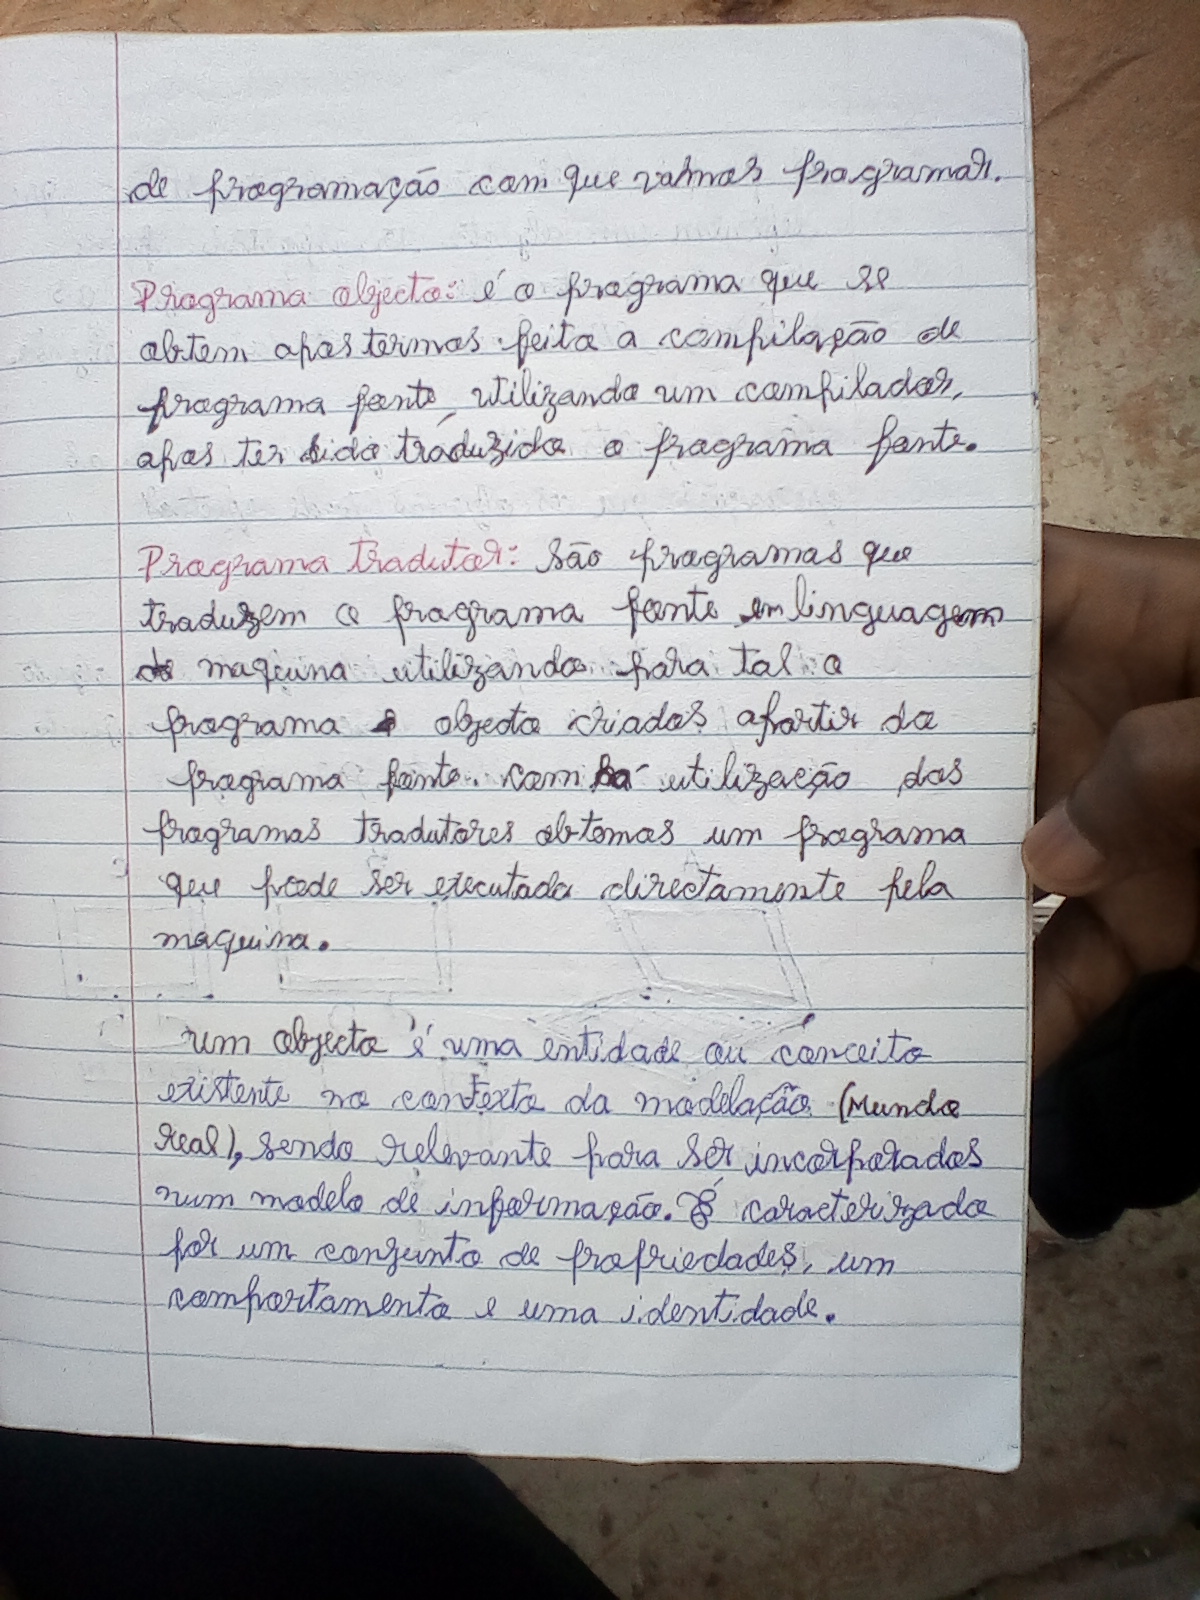 de programação com que vamos programar.
Programa objecto: é o programa que se
obtem apos termos feito a compilação de
programa fonte, utilizando um compilador,
apos ter sido traduzido o programa fonte.
Programa tradutor: São programas que
traduzem o programa fonte em linguagem
de maquina utilizando para tal o
programa objecto criados apartir do
programa fonte. com a utilização dos
programas tradutores obtemos um programa
que pode ser executado directamente pela
maquina.
um objecto é uma entidade ou conceito
existente no contexto da modelação (Mundo
real), sendo relevante para ser incorporados
num modelo de informação. É caracterizado
por um conjunto de propriedades, um
comportamento e uma identidade.